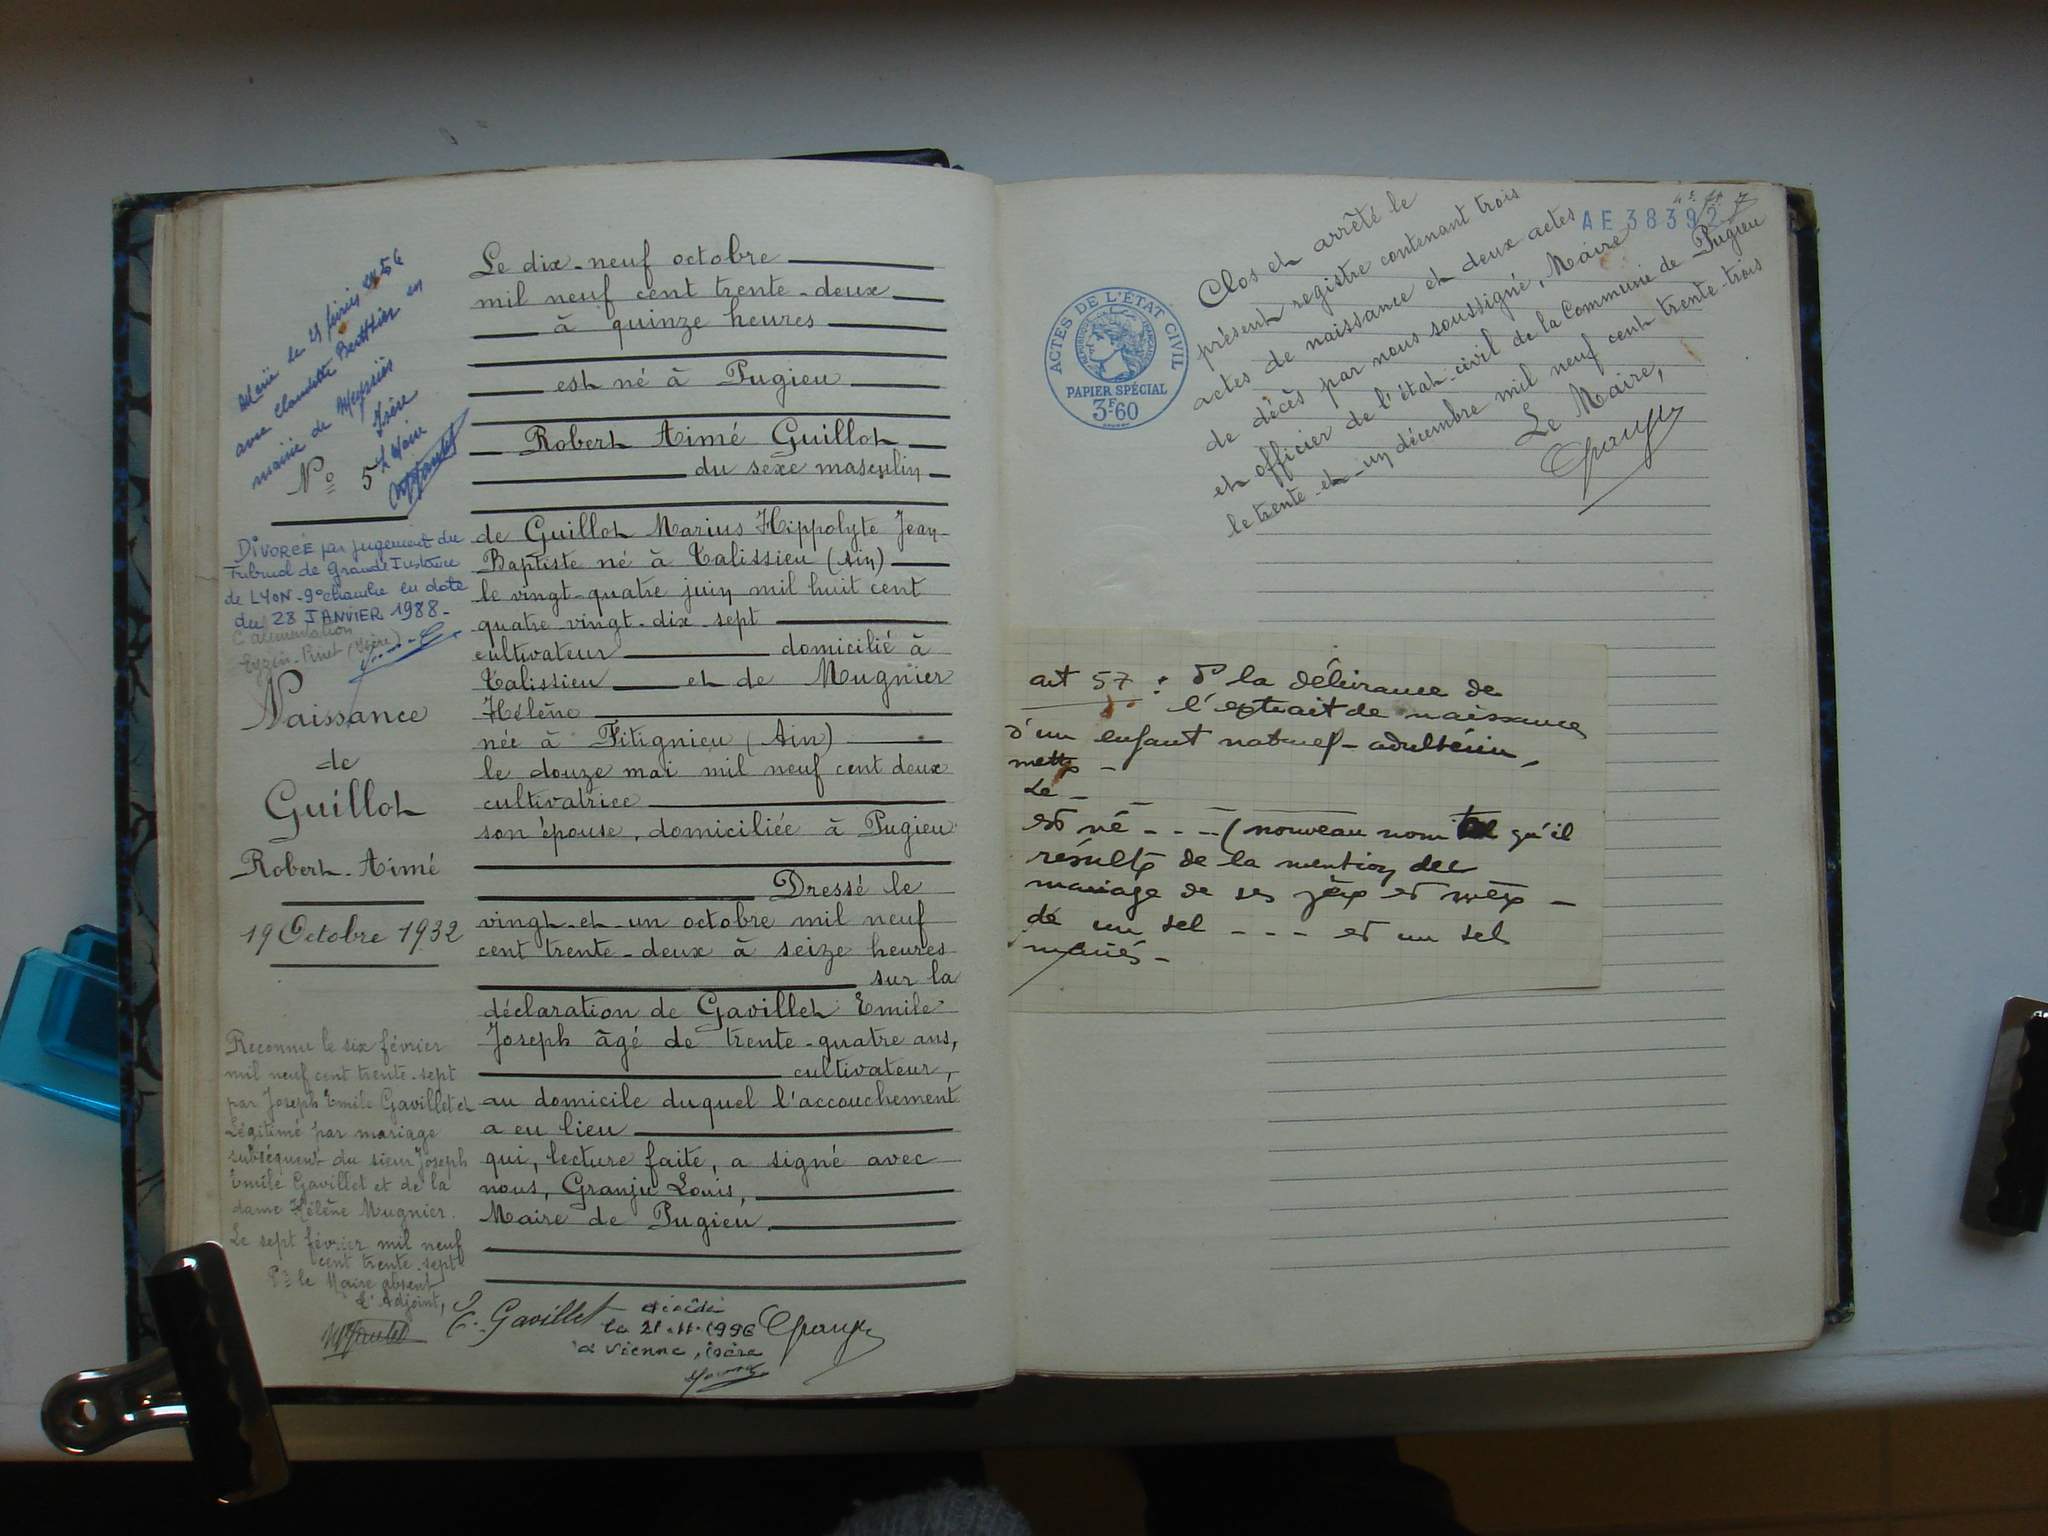 Marié le 25 février 1956
avec Claudette Berthier en
mairie de Meyssiès
Isère
Le Maire
Nº 5
DIVORCÉ par jugement du
Tribunal de Grande Instance
de LYON - 9º chambre en date
du 28 JANVIER 1988 -
Eyzin-Pinet (Isère)
Naissance
de
Guillot
Robert-Aimé
19 Octobre 1932
Reconnu le six février
mil neuf cent trente-sept
par Joseph Emile Gavillet et
Légitimé par mariage
subséquent du sieur Joseph
Emile Gavillet et de la
dame Hélène Mugnier.
Le sept février mil neuf
cent trente-sept
Pr le Maire absent
L'Adjoint,
Le dix-neuf octobre
mil neuf cent trente-deux
à quinze heures
est né à Pugieu
Robert Aimé Guillot
du sexe masculin
de Guillot Marius Hippolyte Jean-
Baptiste né à Talissieu (Ain)
le vingt-quatre juin mil huit cent
quatre vingt-dix-sept
cultivateur domicilié à
Talissieu et de Mugnier
Hélène
née à Fitignieu (Ain)
le douze mai mil neuf cent deux
cultivatrice
son épouse, domiciliée à Pugieu
Dressé le
vingt-et-un octobre mil neuf
cent trente-deux à seize heures
sur la
déclaration de Gavillet Emile
Joseph âgé de trente-quatre ans,
cultivateur,
au domicile duquel l'accouchement
a eu lieu
qui, lecture faite, a signé avec
nous, Granju Louis,
Maire de Pugieu.
E. Gavillet
décédé
le 21-11-1996
à Vienne, isère
AE 38392
ACTES DE L'ÉTAT CIVIL
RÉPUBLIQUE FRANÇAISE
PAPIER SPÉCIAL
3F.60
Clos et arrêté le
présent registre contenant trois
actes de naissance et deux actes
de décès par nous soussigné, Maire
et officier de l'état-civil de la Commune de Pugieu
le trente-et-un décembre mil neuf cent trente-trois
Le Maire,
art 57 : Pr la délivrance de
l'extrait de naissance
d'un enfant naturel-adultérin,
mettre -
Le -
est né - - - - (nouveau nom tel qu'il
résulte de la mention del
mariage de ses père et mère -
de un tel - - - et un tel
mariés -